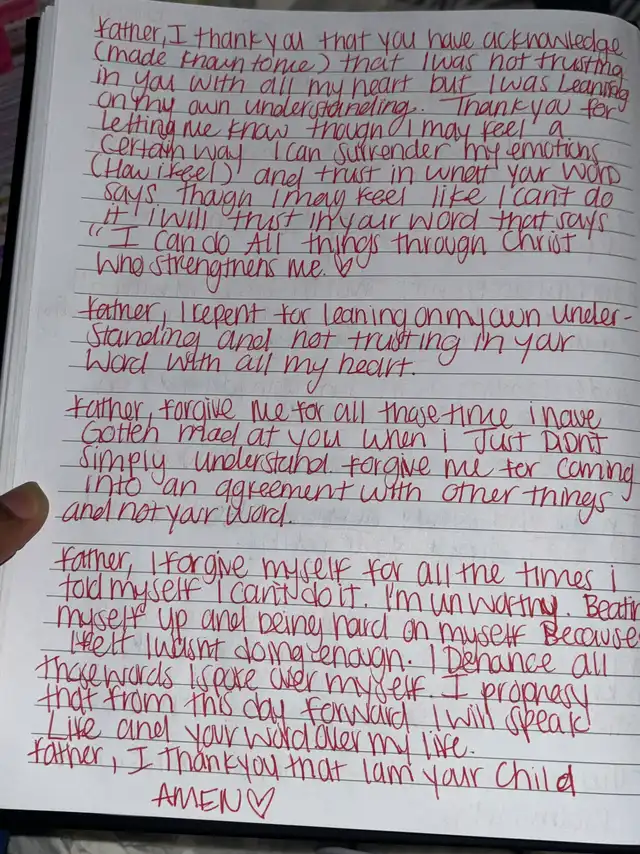 Father, I thank you that you have acknowledge
(made known to me) that I was not trusting
in you with all my heart but I was leaning
on my own understanding. Thank you for
letting me know though I may feel a
certain way I can surrender my emotions
(How i feel) and trust in what your word
says. Though I may feel like I can't do
it I will trust in your word that says
"I can do All things through Christ
who strengthens me. ♡
Father, I repent for leaning on my own under-
standing and not trusting in your
word with all my heart.
Father, forgive me for all those time i have
Gotten mad at you when i Just DIDNT
simply understand. Forgive me for coming
into an agreement with other things
and not your word.
Father, I forgive myself for all the times i
told myself I can't do it. I'm unworthy. Beatin
myself up and being hard on myself Because
I felt I wasn't doing enough. I Denance all
those words I spoke over myself. I prophesy
that from this day forward I will speak
Life and your word over my life.
Father, I thank you that I am your Child
AMEN ♡